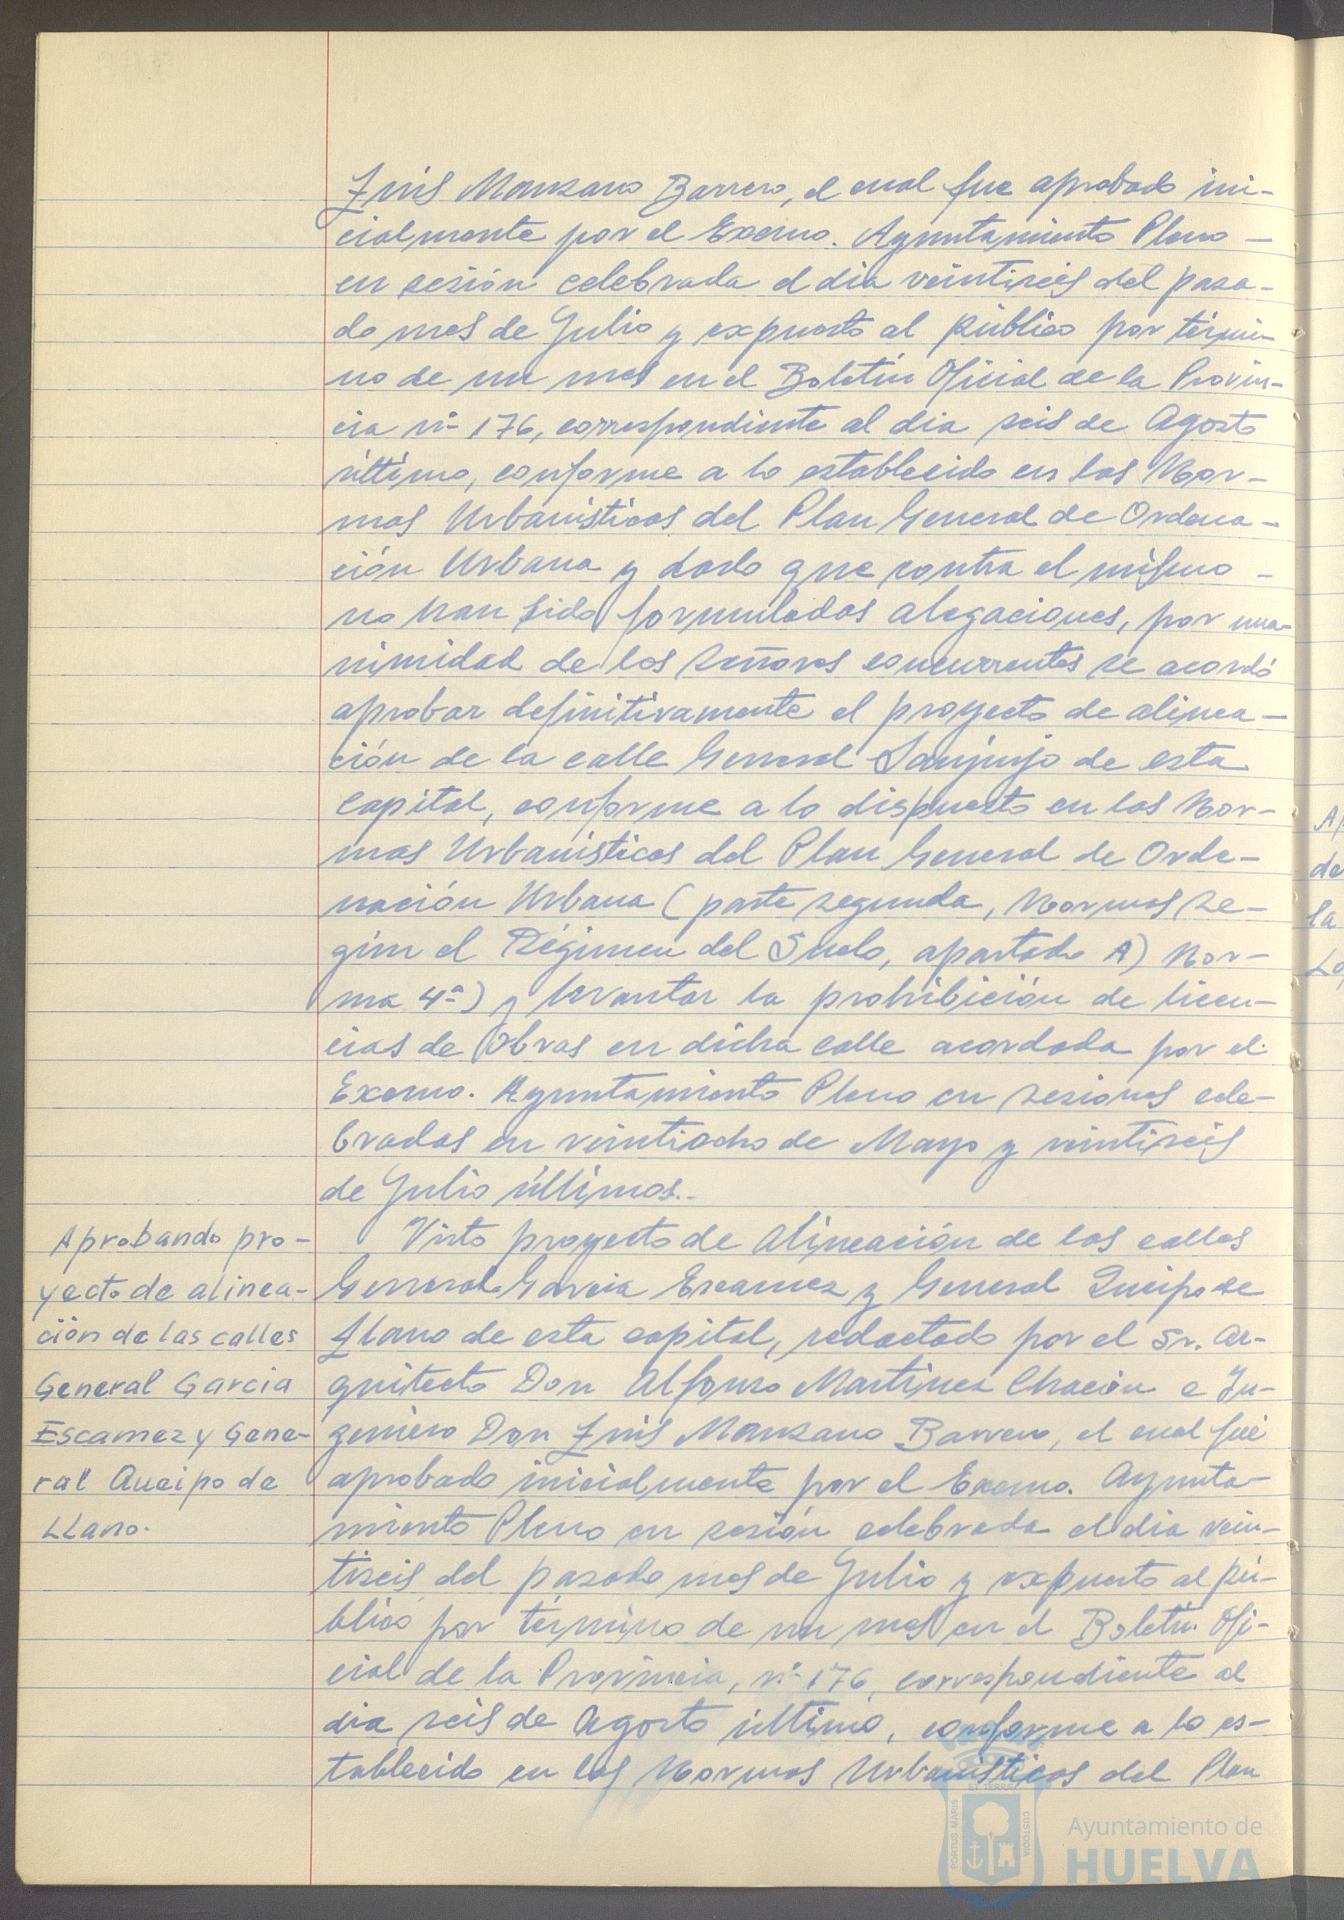 Luis Manzano Barrero, el cual fue aprobado ini-
cialmente por el Excmo. Ayuntamiento Pleno -
en sesión celebrada el dia veintiseis del pasa-
do mes de Julio y expuesto al público por térmi-
no de un mes en el Boletín Oficial de la Provin-
cia nº 176, correspondiente al dia seis de Agosto
último, conforme a lo establecido en las Nor-
mas Urbanísticas del Plan General de Ordena-
ción Urbana y dado que contra el mismo -
no han sido formuladas alegaciones, por una-
nimidad de los señores concurrentes se acordó
aprobar definitivamente el proyecto de alinea-
ción de la calle General Sanjurjo de esta
capital, conforme a lo dispuesto en las Nor-
mas Urbanísticas del Plan General de Orde-
nación Urbana (parte segunda, Normas se-
gún el Régimen del Suelo, apartado A) Nor-
ma 4ª) y levantar la prohibición de licen-
cias de Obras en dicha calle acordada por el
Excmo. Ayuntamiento Pleno en sesiones cele-
bradas en veintiocho de Mayo y veintiseis
de Julio últimos.-
Aprobando pro-
yecto de alinea-
ción de las calles
General Garcia
Escamez y Gene-
ral Queipo de
Llano.
Visto proyecto de alineación de las calles
General Garcia Escamez y General Queipo de
Llano de esta capital, redactado por el Sr. Ar-
quitecto Don Alfonso Martinez Chacón e In-
geniero Don Luis Manzano Barrero, el cual fué
aprobado inicialmente por el Excmo. Ayunta-
miento Pleno en sesión celebrada el dia vein-
tiseis del pasado mes de Julio y expuesto al pú-
blico por término de un mes en el Boletín Ofi-
cial de la Provincia, nº 176, correspondiente al
dia seis de Agosto último, conforme a lo es-
tablecido en las Normas Urbanísticas del Plan
A
de
la
Lo
PORTUS MARIS
ET TERRAE
CUSTODIA
Ayuntamiento de
HUELVA